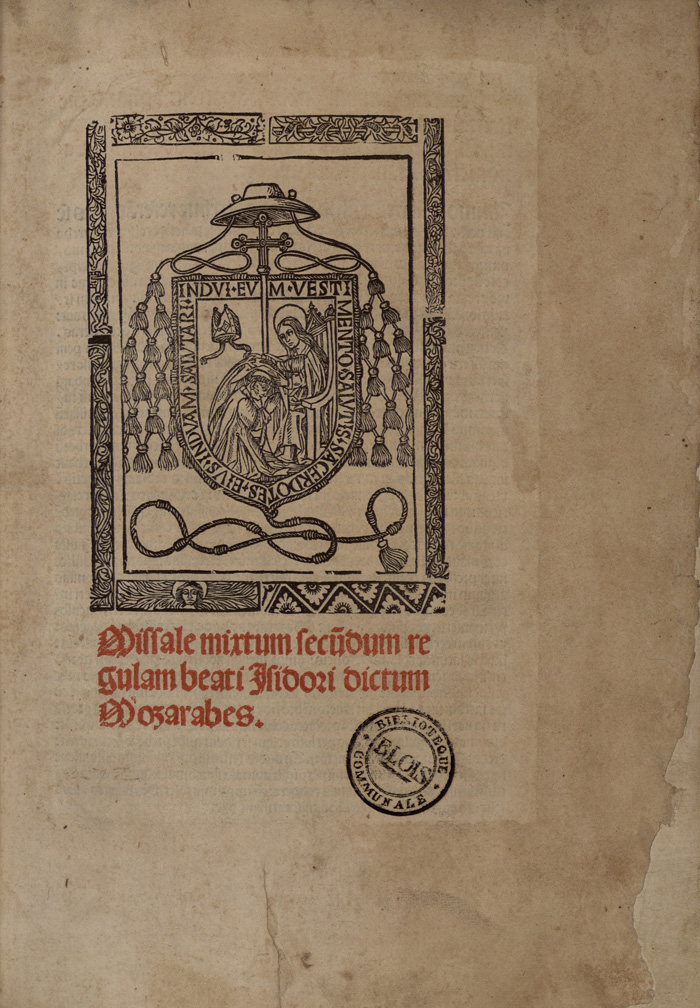 INDVI·EVM·VESTI
MENTO·SALVTIS·SACERDOTES+EIVS·INDVAM·SALVTARI·
Missale mixtum secūdum re
gulam beati Isidori dictum
Mozarabes.
BIBLIOTEQUE
BLOIS
COMMUNALE